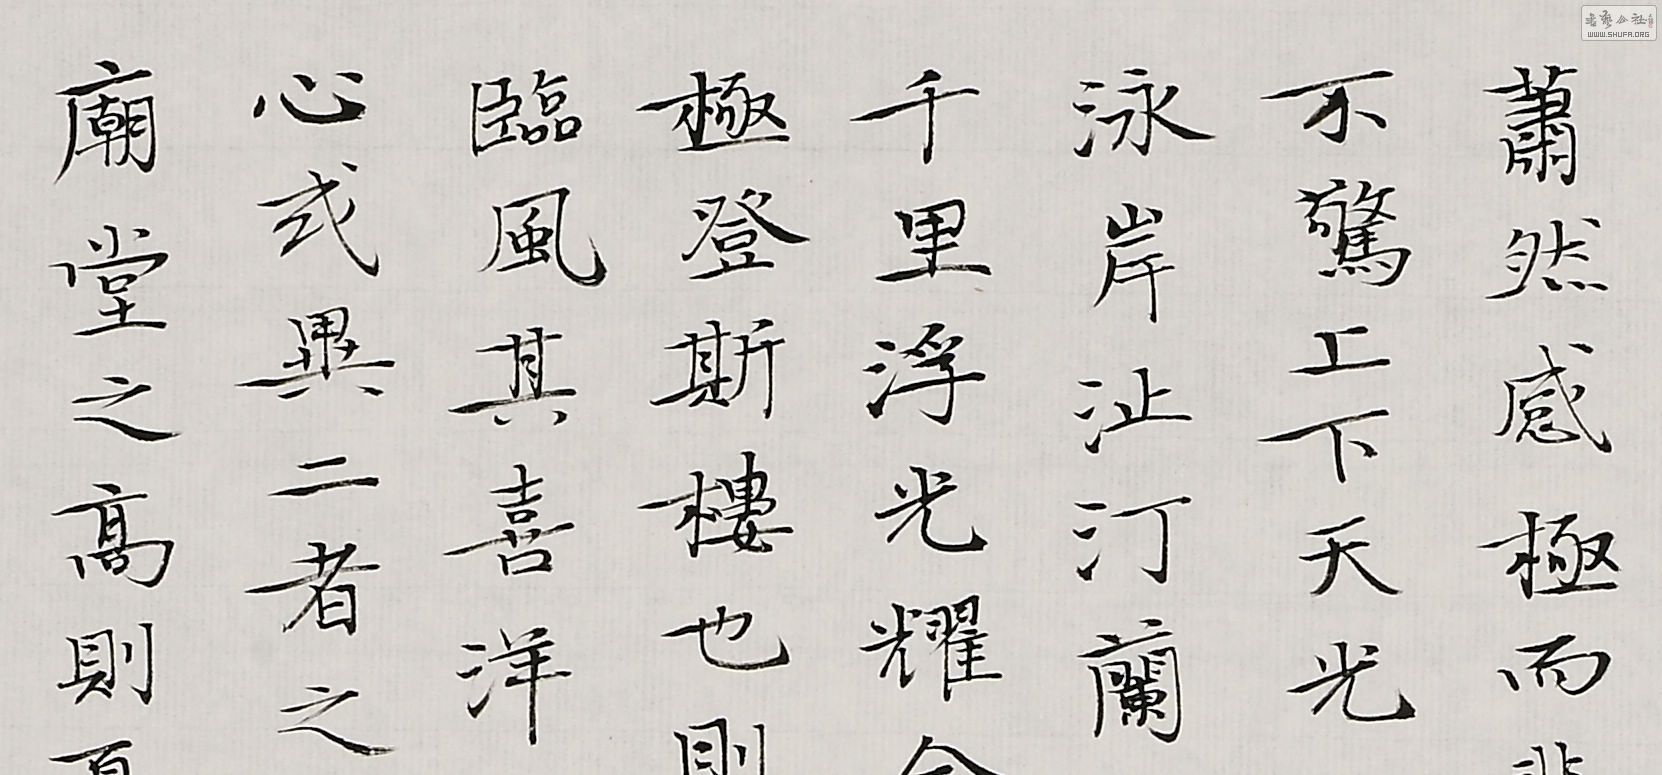 蕭然感極而悲
不驚上下天光
泳岸汦汀蘭
千里浮光耀金
極登斯樓也則
臨風其喜洋
心或異二者之
廟堂之高則憂
WWW.SHUFA.ORG